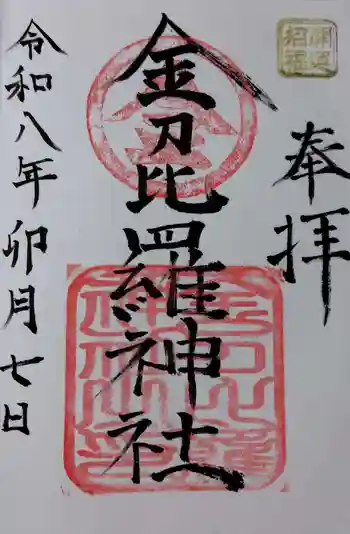 奉拝
金毘羅神社
令和八年卯月七日